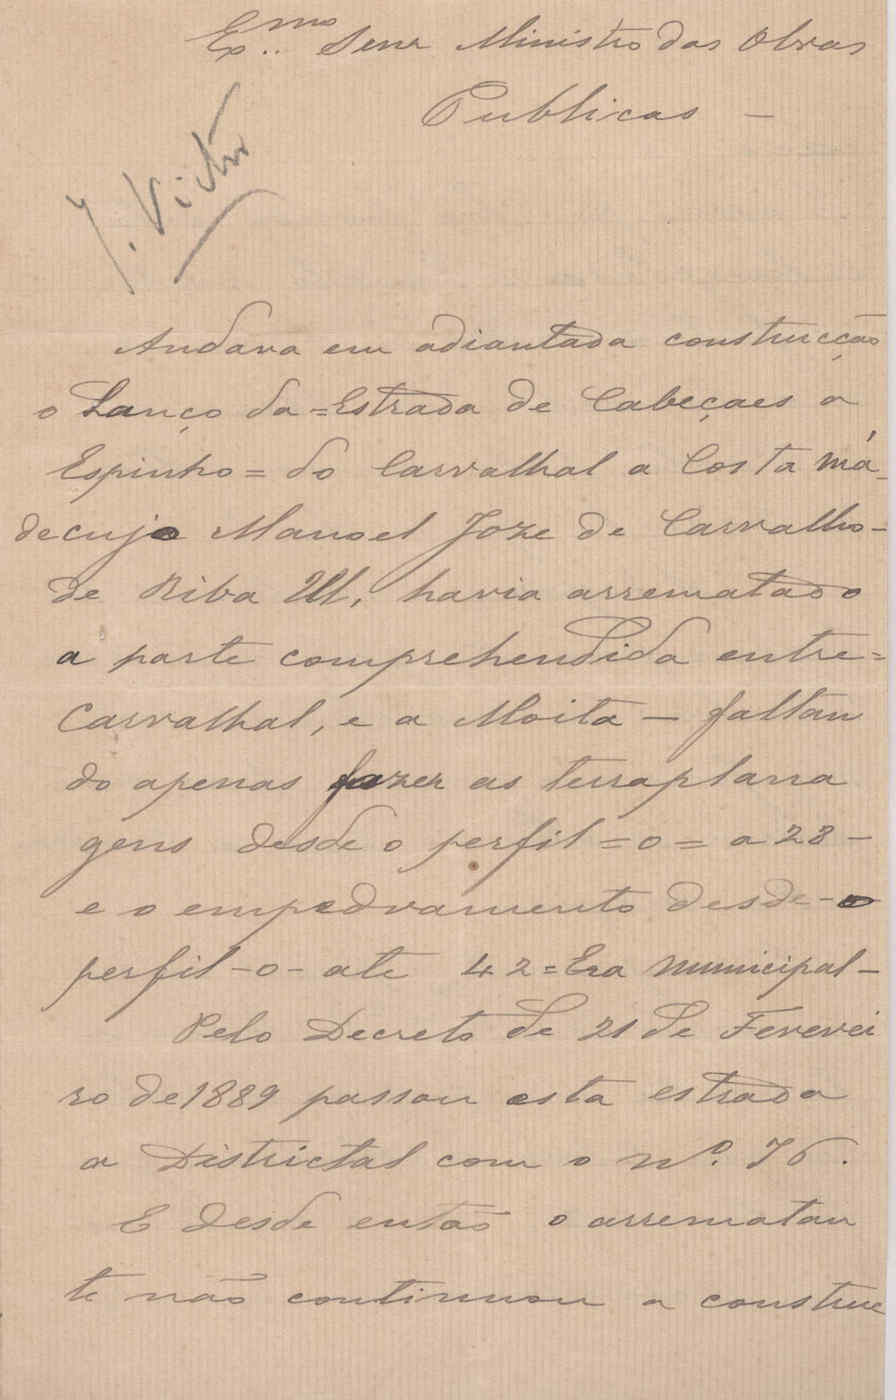 Ex.mo Senr Ministro das Obras
Publicas —
J. Victor
Andava em adiantada construcção
o Lanço da = Estrada de Cabeçaes a
Espinho = do Carvalhal a Costa má-
de cujo Manoel Joze de Carvalho-
de Riba Ul, havia arrematado
a parte comprehendida entre =
Carvalhal, e a Moita — faltan
do apenas fazer as terraplana
gens desde o perfil = 0 = a 28 —
e o empedramento desde - o
perfil - 0 - ate 42 = Era municipal —
Pelo Decreto de 21 de Feverei
ro de 1889 passou esta estrada
a Districtal com o nº. 76.
E desde então o arrematan
te não continuou a construc